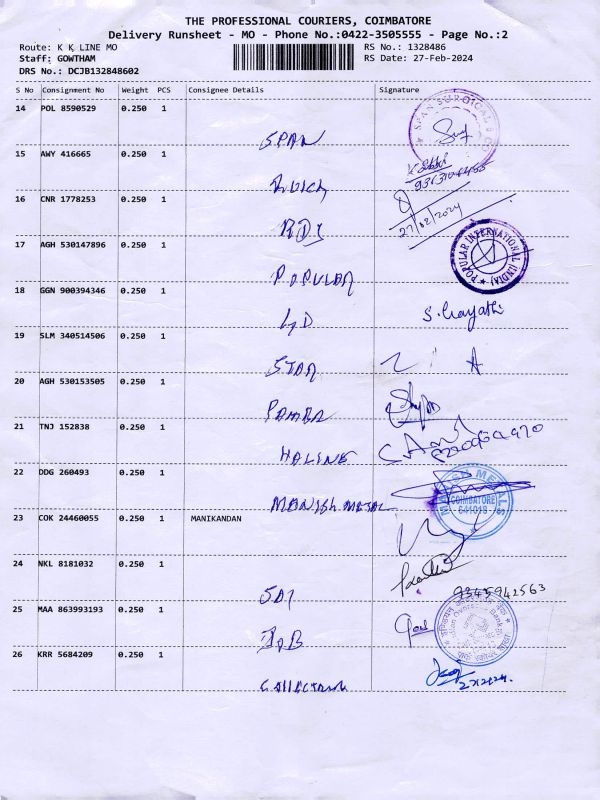 THE PROFESSIONAL COURIERS, COIMBATORE
Delivery Runsheet - MO - Phone No.:0422-3505555 - Page No.:2
Route: K K LINE MO
RS No.: 1328486
Staff: GOWTHAM
RS Date: 27-Feb-2024
DRS No.: DCJB132848602
S No Consignment No Weight PCS Consignee Details Signature
14 POL 8590529 0.250 1
SPAN
SPAN SURGICAL & CO
15 AWY 416665 0.250 1
16 CNR 1778253 0.250 1
27/02/2024
17 AGH 530147896 0.250 1
POPULAR
POPULAR INTERNATIONAL (INDIA)
18 GGN 900394346 0.250 1
19 SLM 340514506 0.250 1
STAR
20 AGH 530153505 0.250 1
PAMBA
21 TNJ 152838 0.250 1
22 DDG 260493 0.250 1
MANISH METAL
MANISH METALS
COIMBATORE
641018
23 COK 24460055 0.250 1 MANIKANDAN
24 NKL 8181032 0.250 1
9345942563
SAI
25 MAA 863993193 0.250 1
Indian Overseas Bank
26 KRR 5684209 0.250 1